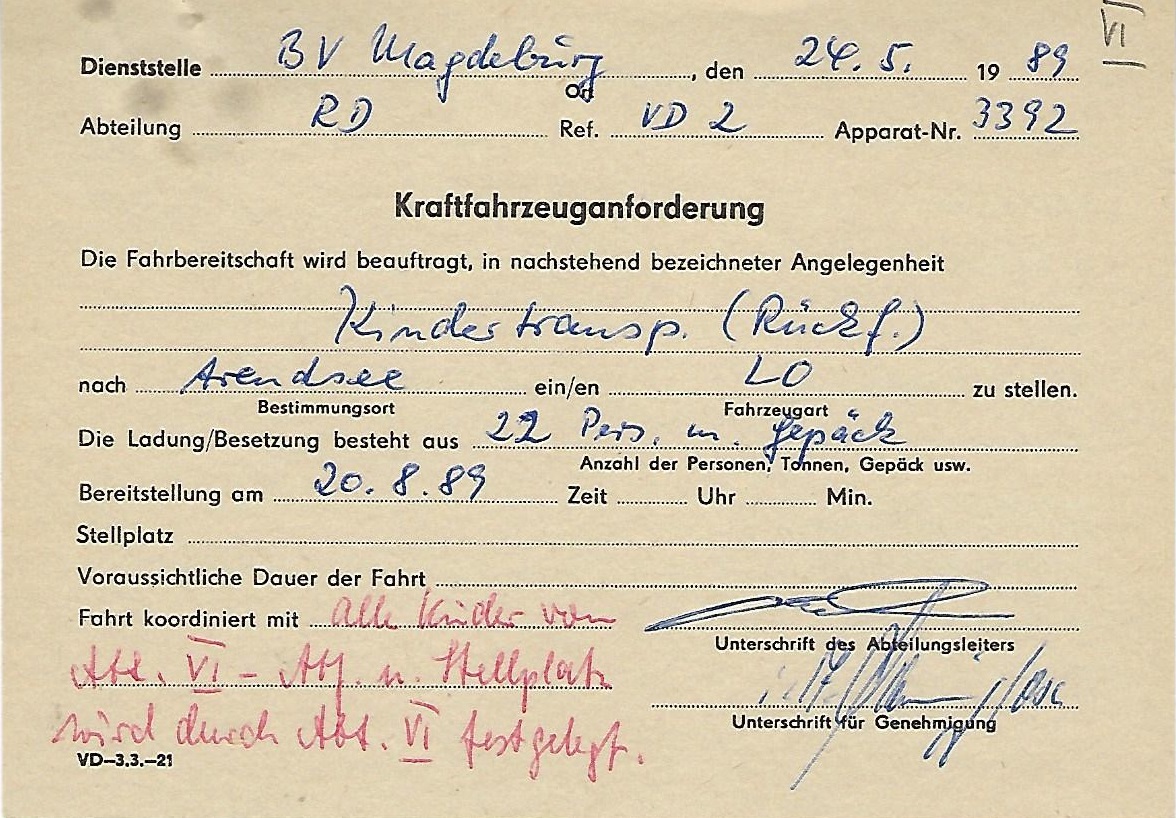 VI
Dienststelle BV Magdeburg, den 24. 5. 19 89
Od
Abteilung RD Ref. VD 2 Apparat-Nr. 3392
Kraftfahrzeuganforderung
Die Fahrbereitschaft wird beauftragt, in nachstehend bezeichneter Angelegenheit
Kindertransp. (Rückf.)
nach Arendsee ein/en LO zu stellen.
Bestimmungsort Fahrzeugart
Die Ladung/Besetzung besteht aus 22 Pers. m. Gepäck
Anzahl der Personen, Tonnen, Gepäck usw.
Bereitstellung am 20. 8. 89 Zeit Uhr Min.
Stellplatz
Voraussichtliche Dauer der Fahrt
Fahrt koordiniert mit alle Kinder von
Unterschrift des Abteilungsleiters
Abt. VI – Abf. u. Stellplatz
wird durch Abt. VI festgelegt.
Unterschrift für Genehmigung
VD–3.3.–21